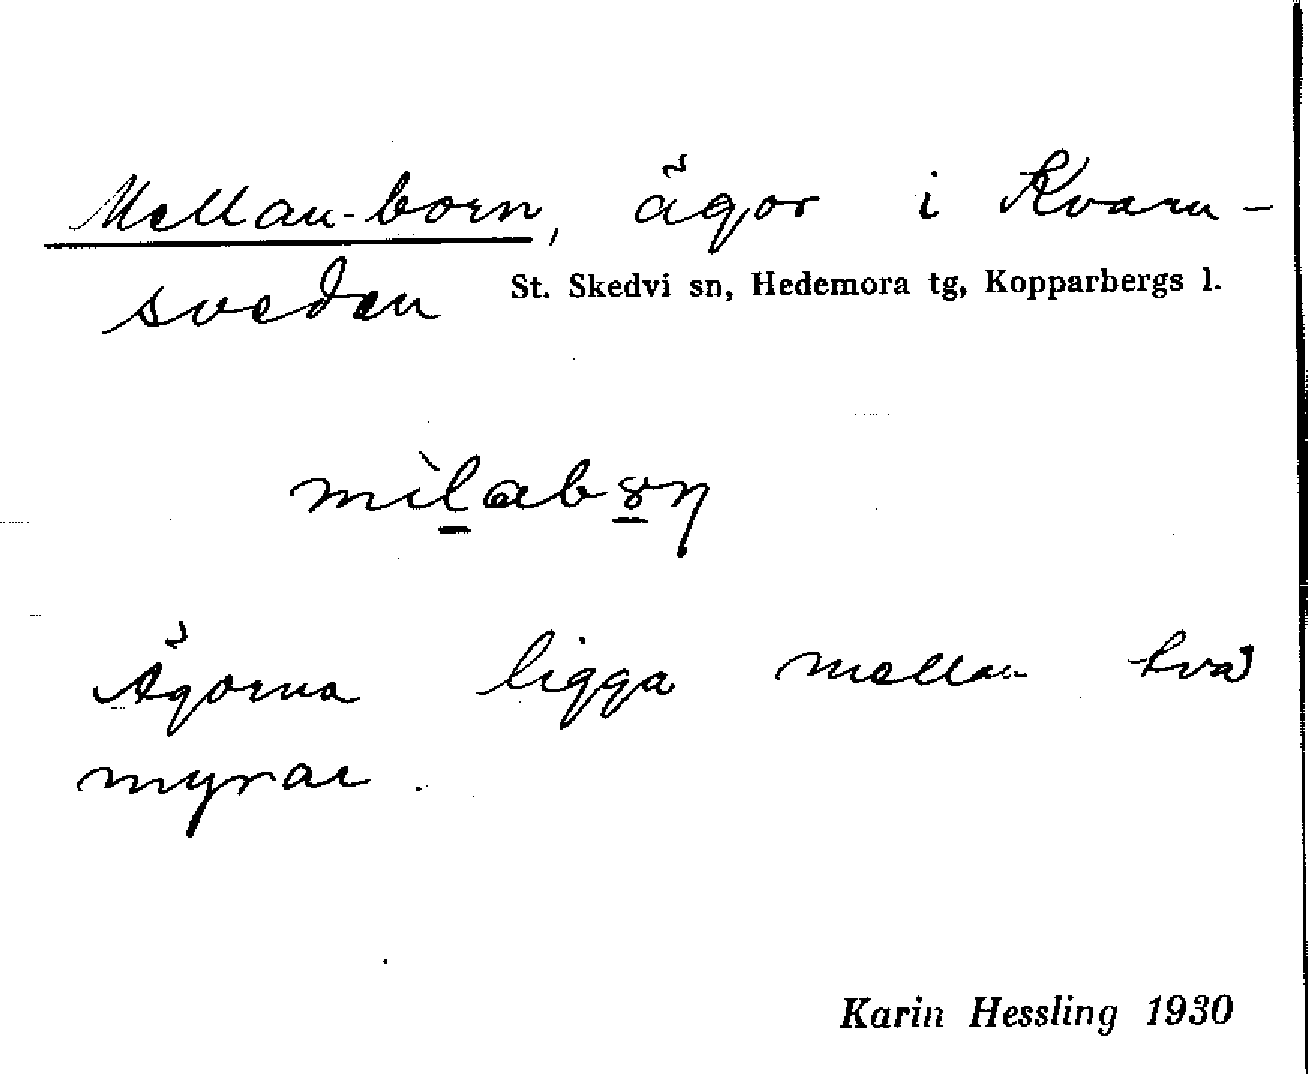 Mellan-born, ägor i Kvarn-
sveden St. Skedvi sn, Hedemora tg, Kopparbergs l.
Ägorna ligga mellan två
myrar.
Karin Hessling 1930